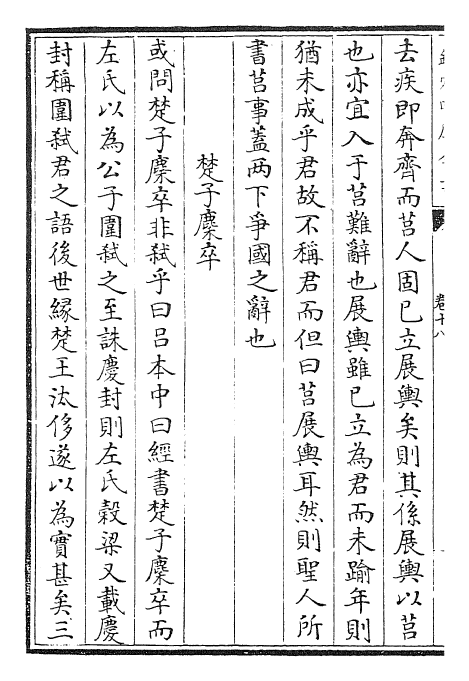 去疾即奔齊而莒人固已立展輿矣則其係展輿以莒
也亦宜入于莒難辭也展輿雖已立為君而未踰年則
猶未成乎君故不稱君而但曰莒展輿耳然則聖人所
書莒事蓋两下爭國之辭也
楚子麇卒
或問楚子麇卒非弑乎曰吕本中曰經書楚子麇卒而
左氏以為公子圍弑之至誅慶封則左氏榖梁又載慶
封稱圍弑君之語後世緣楚王汰侈遂以為實甚矣三
卷十八